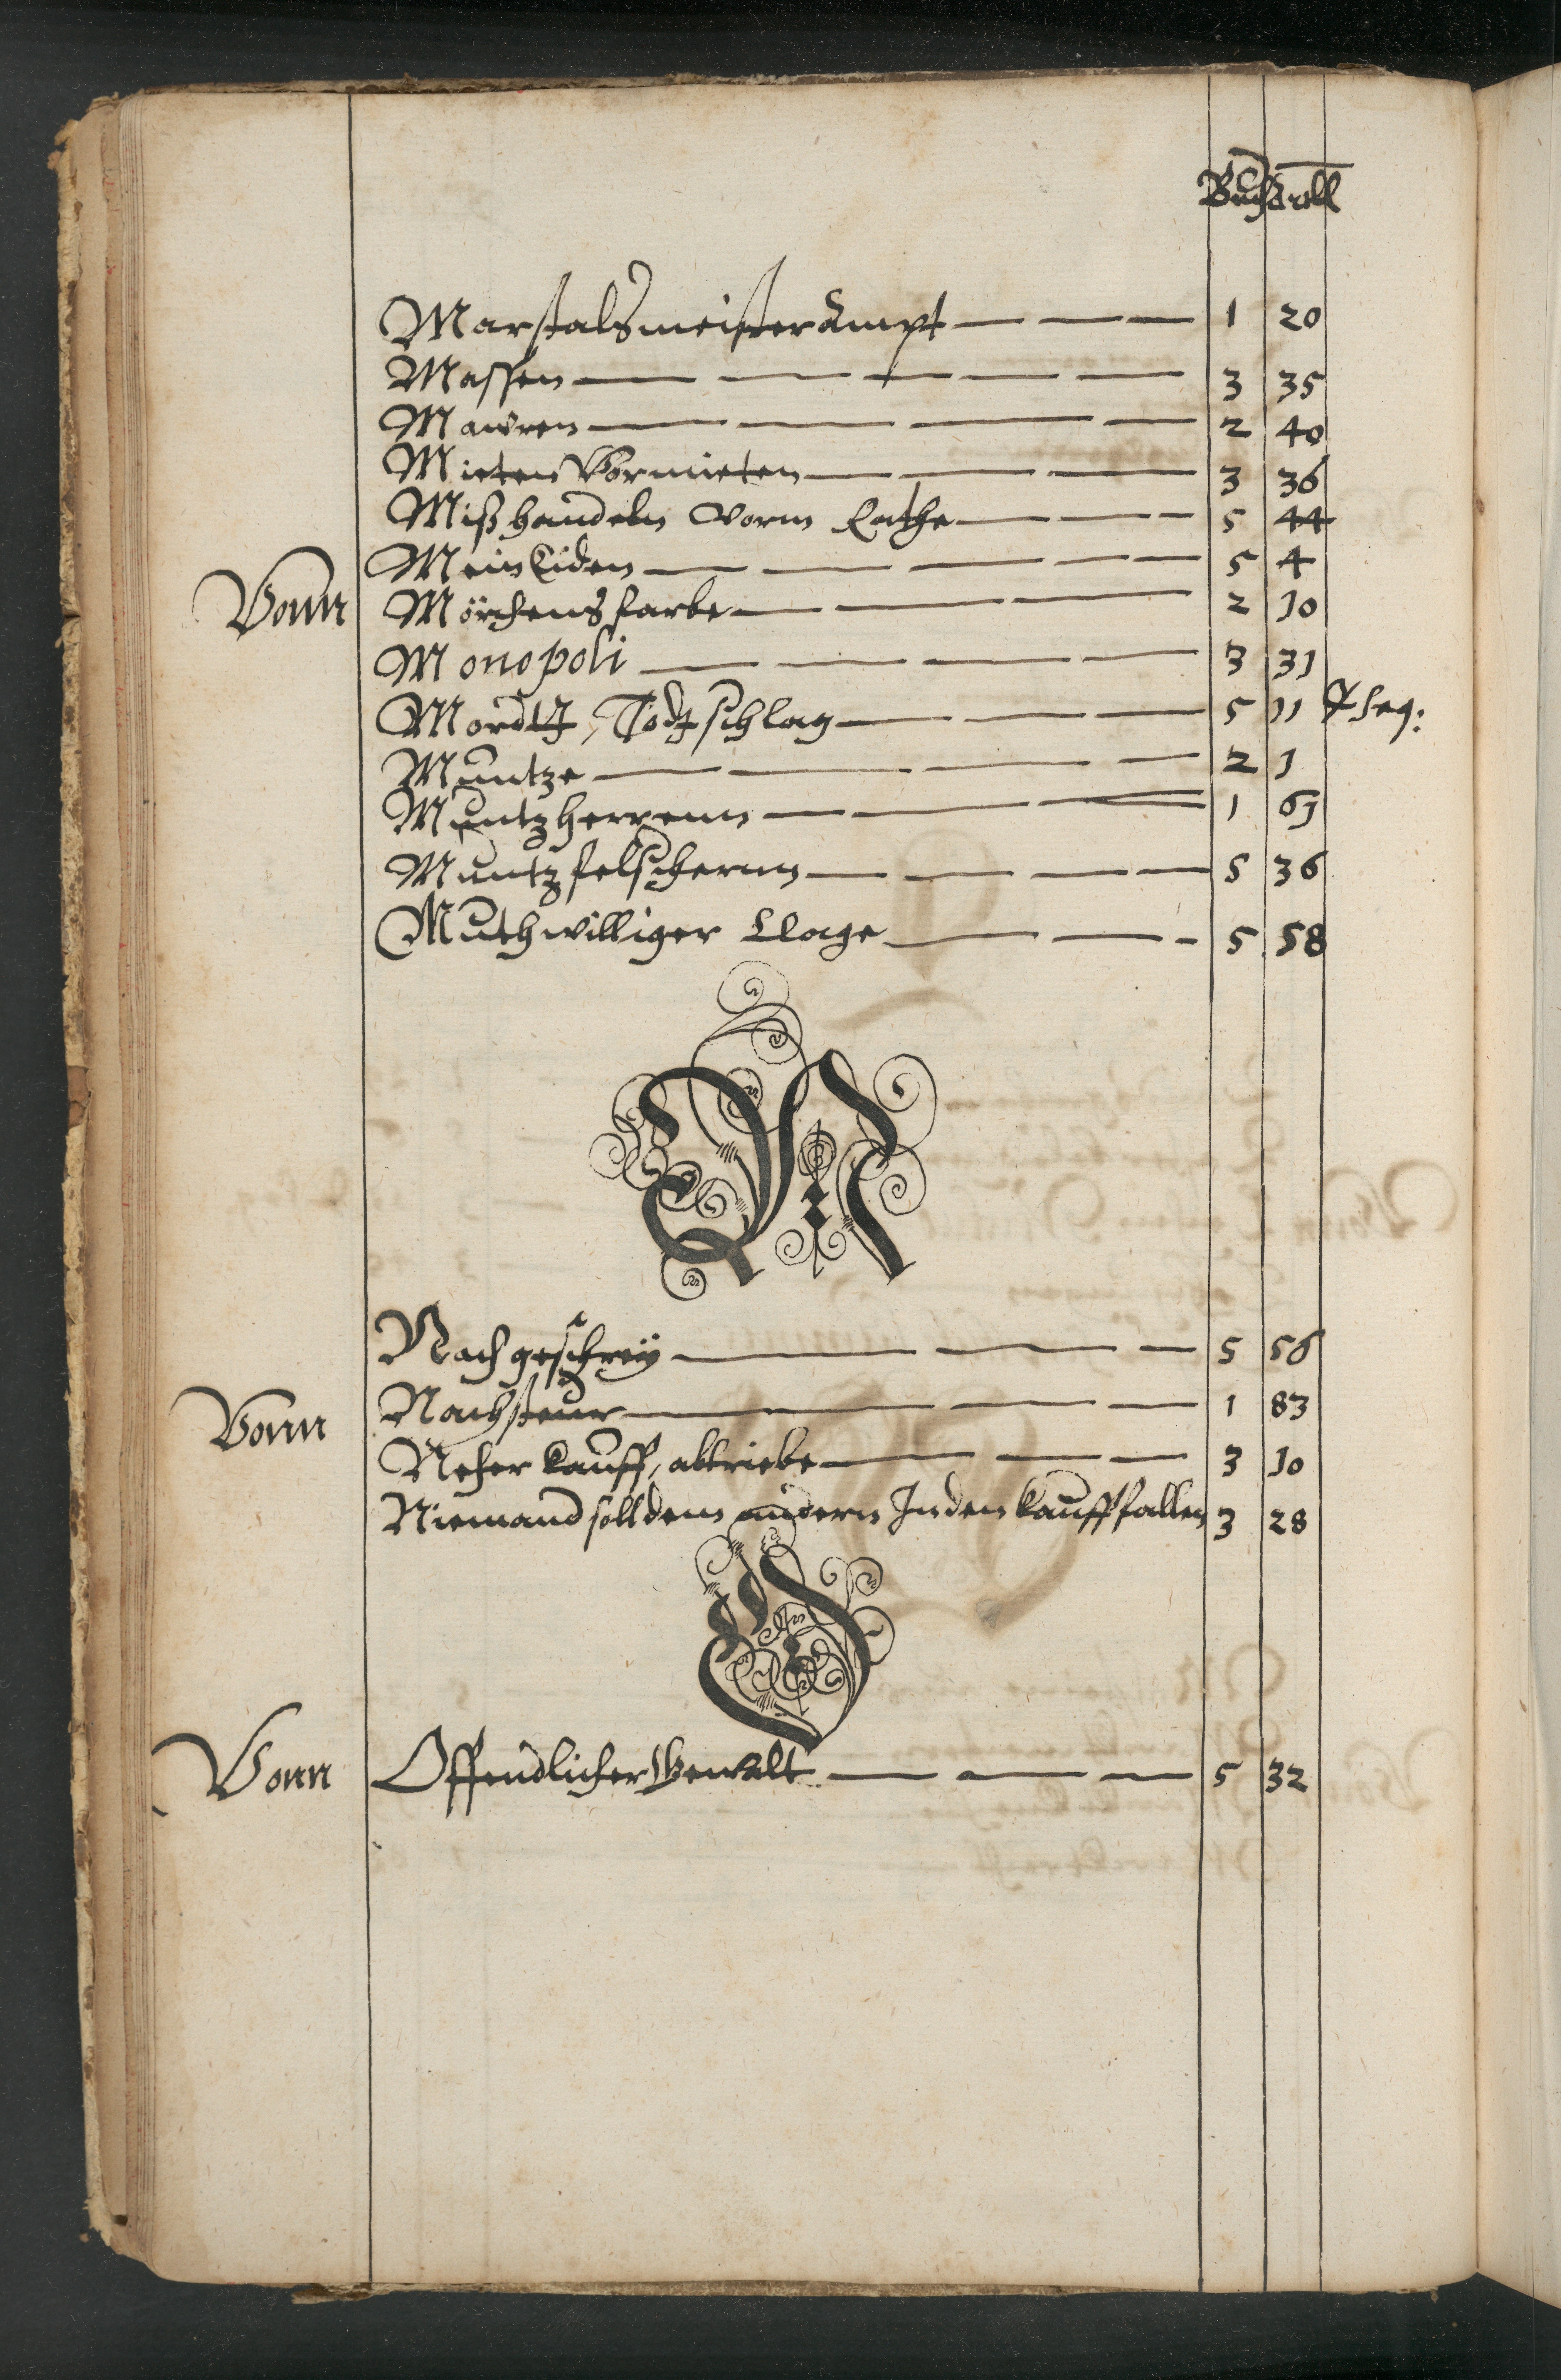 Buch Artll
Marstalsmeister Ampt 1 20
Massen 3 35
Mawren 2 40
Mieten Vormieten 3 36
Mißhandeln vorm Rathe 5 44
MeinEiden 5 4
Vonn Mörchens farbe 2 10
Monopoli 3 31
Mordtt, Todtschlag 5 11 & seq:
Muntze 2 1
Muntzherrenn 1 63
Muntzfelschernn 5 36
Muthwilliger Clage 5 58
N
Nachgeschrey 5 56
Vonn Nachsteur 1 83
Neher kauff, abtriebe 3 10
Niemand soll dem andern In den kauff fallen 3 28
O
Vonn Offendlicher Gewalt 5 32